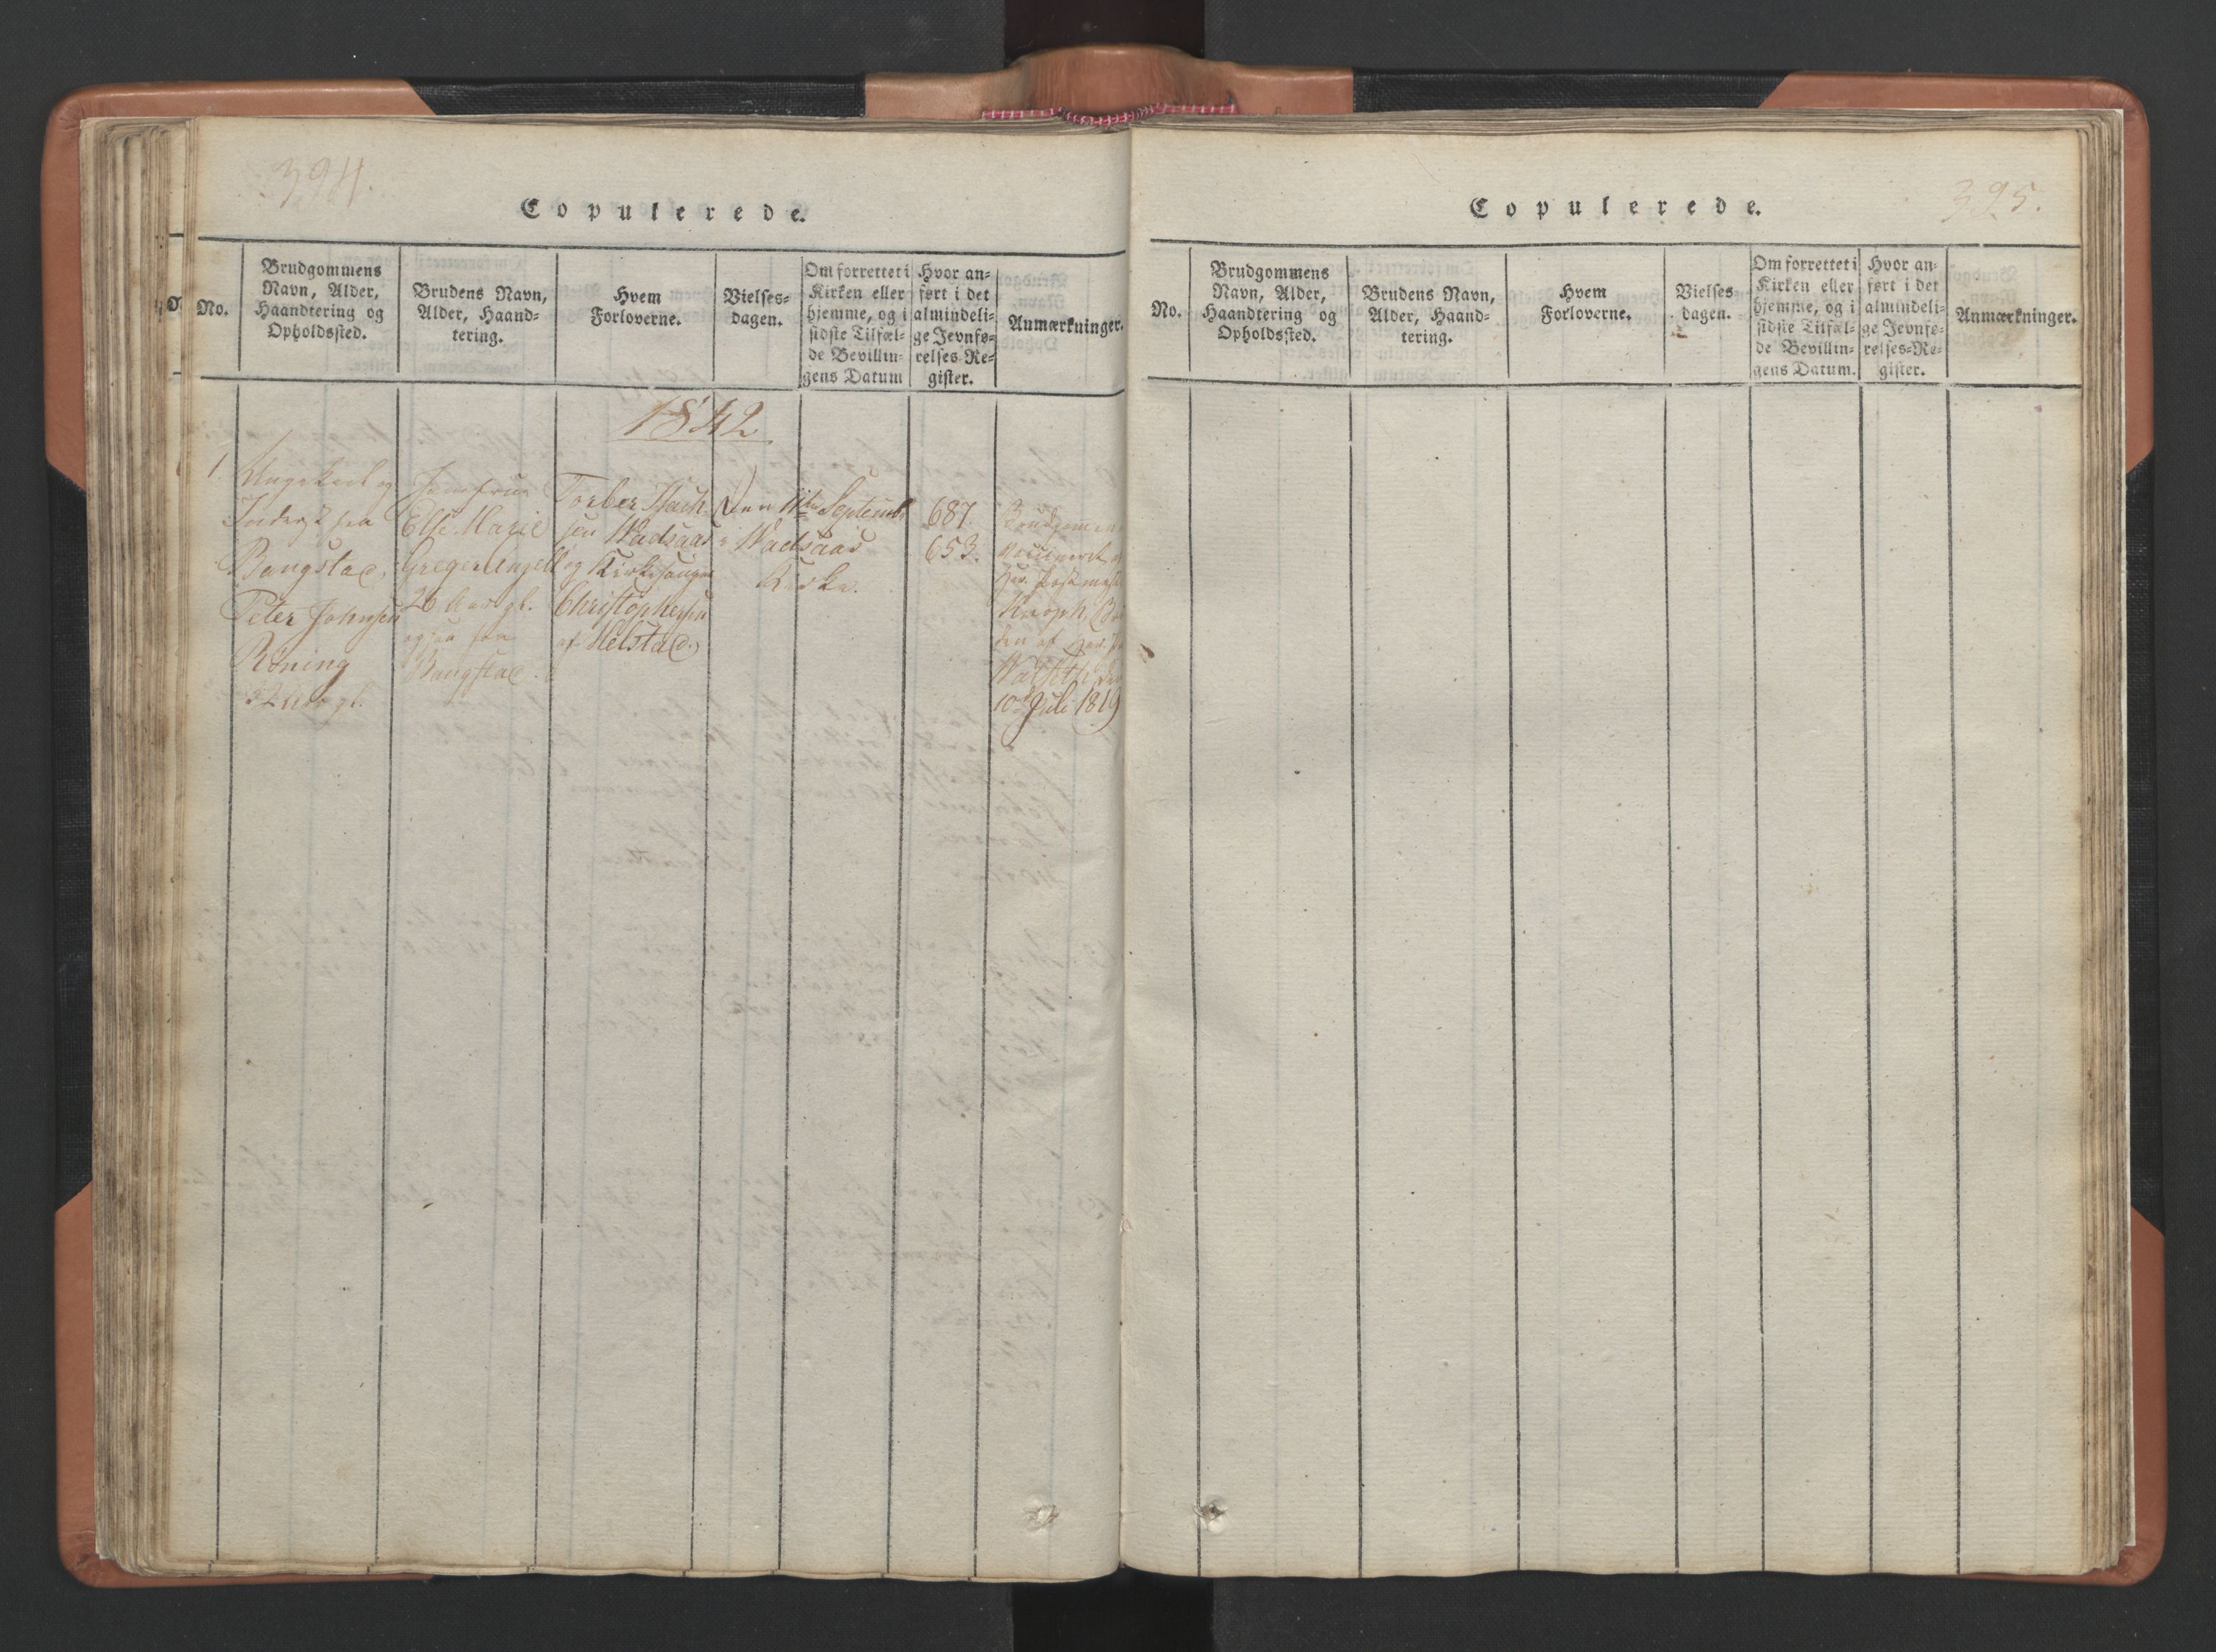 394.
Copulerede.
No.
Brudgommens
Navn, Alder,
Haandtering og
Opholdssted.
Brudens Navn,
Alder, Haand-
tering.
Hvem
Forloverne.
Vielses-
dagen.
Om forrettet i
Kirken eller
hjemme, og i
sidste Tilfæl-
de Bevillin-
gens Datum
Hvor an-
ført i det
almindeli-
ge Jevnfø-
relses-Re-
gister.
Anmærkninger.
1842
1.
Ungekarl og
fra
Bangstad,
Peter Johnsen
Röning
32 Aar gl.
Jomfrue
Else Marie
Greger Angell
26 Aar gl.
Bangstad.
Torber Hach-
sen Nadsaas
og Kirkesanger
Christophersen
af Helstad.
Den 11te Septemb.
Nadsaas
Kirke.
687.
653.
Brudgommen
Vaccineret
Knoph,
den af
10de Juli 1819
395.
Copulerede.
No.
Brudgommens
Navn, Alder,
Haandtering og
Opholdssted.
Brudens Navn,
Alder, Haand-
tering.
Hvem
Forloverne.
Vielses
dagen.
Om forrettet i
Kirken eller
hjemme, og i
sidste Tilfæl-
de Bevillin-
gens Datum.
Hvor an-
ført i det
almindeli-
ge Jevnfø-
relses-Re-
gister.
Anmærkninger.